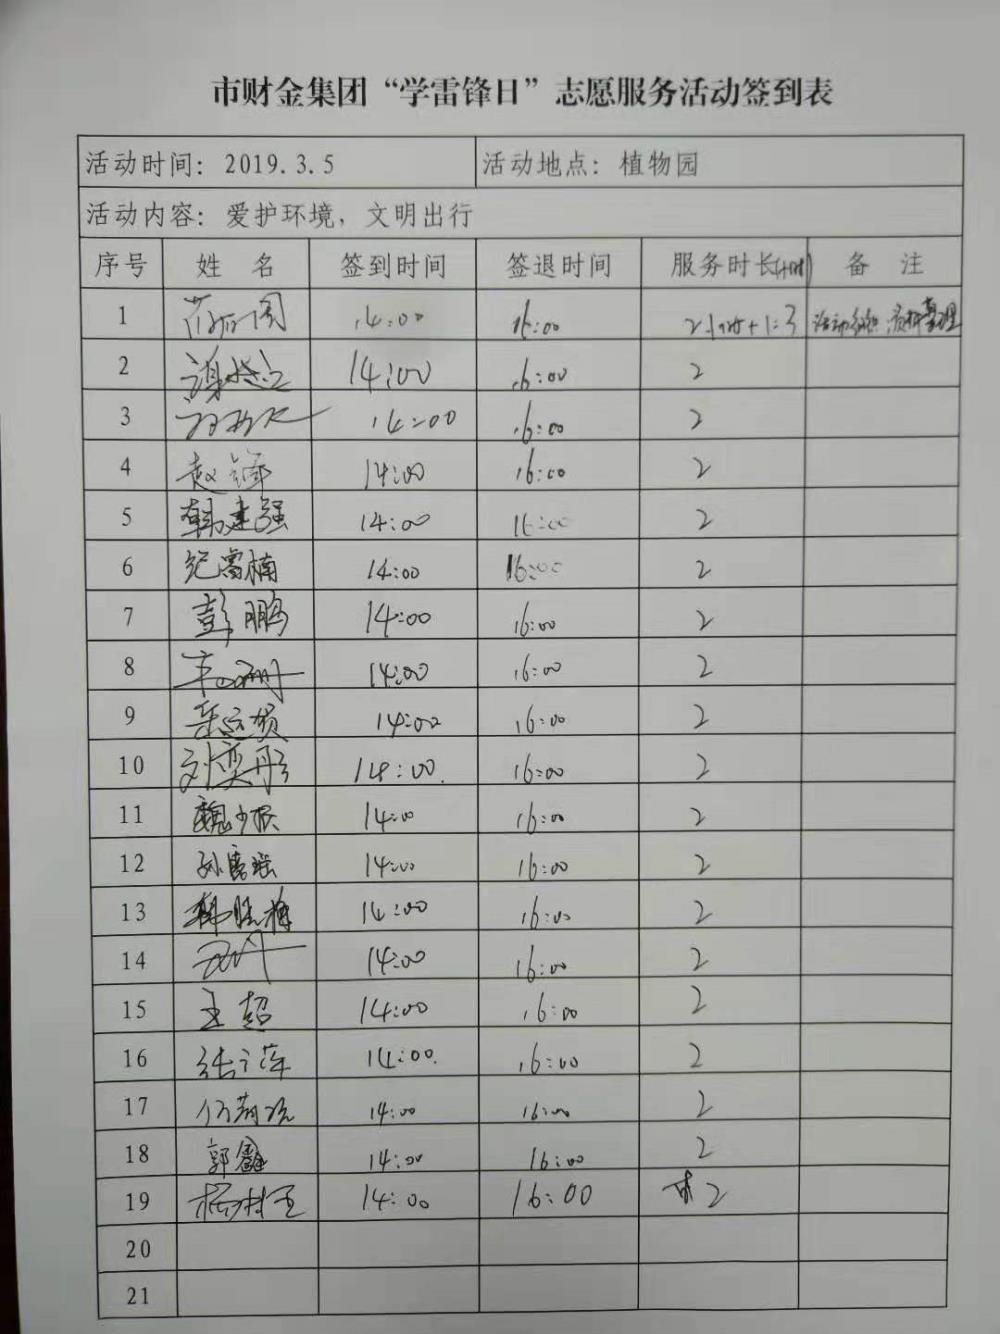 市财金集团“学雷锋日”志愿服务活动签到表
活动时间：2019.3.5 活动地点：植物园
活动内容：爱护环境，文明出行
序号 姓名 签到时间 签退时间 服务时长 备注
1 14:00 16:00 +1=3 活动组织、资料整理
2 14:00 16:00 2
3 14:00 16:00 2
4 赵锋 14:00 16:00 2
5 韩建强 14:00 16:00 2
6 纪富楠 14:00 16:00 2
7 彭鹏 14:00 16:00 2
8 14:00 16:00 2
9 14:00 16:00 2
10 刘奕彤 14:00 16:00 2
11 魏少振 14:00 16:00 2
12 孙雪瑶 14:00 16:00 2
13 韩晓梅 14:00 16:00 2
14 14:00 16:00 2
15 王超 14:00 16:00 2
16 张广萍 14:00 16:00 2
17 14:00 16:00 2
18 郭鑫 14:00 16:00 2
19 14:00 16:00 2
20
21